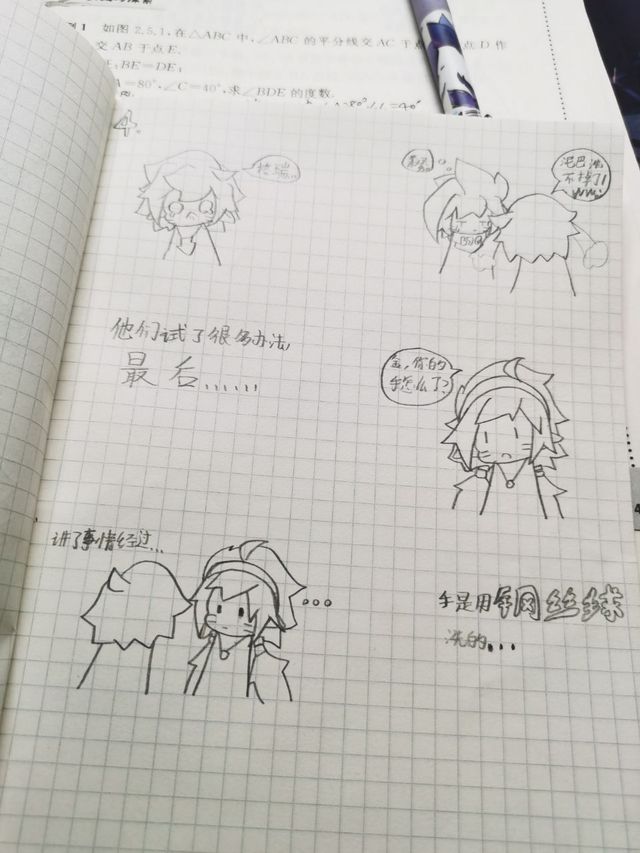 例1 如图 2.5.1,在△ABC 中,∠ABC 的平分线交 AC 于点
点 D 作
交 AB 于点 E.
BE=DE;
A=80°,∠C=40°,求∠BDE 的度数.
4.
格瑞。。
泥巴洗
不掉了!
他们试了很多办法,
最后......
金,你的
手怎么了?
讲了事情经过...
...
手是用牟网丝球
洗的...